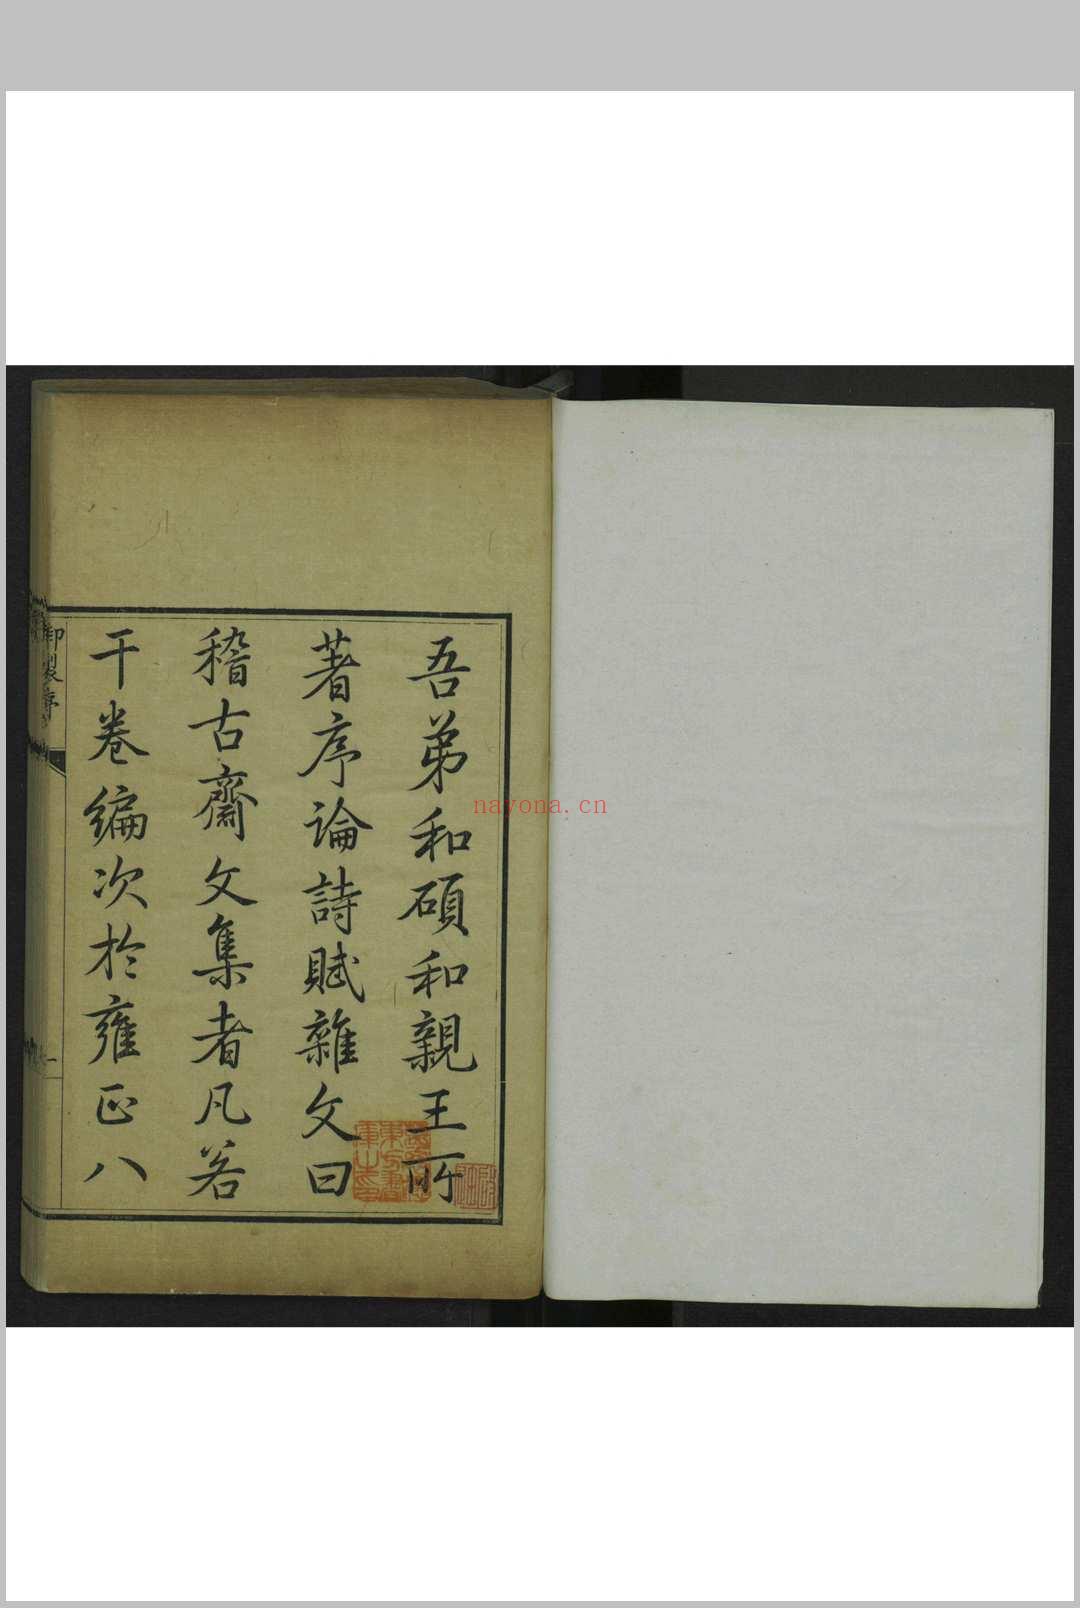 吾弟和碩和親王所
著序論詩賦雜文曰
稽古齋文集者凡若
干卷編次於雍正八
御製序
nayona.cn